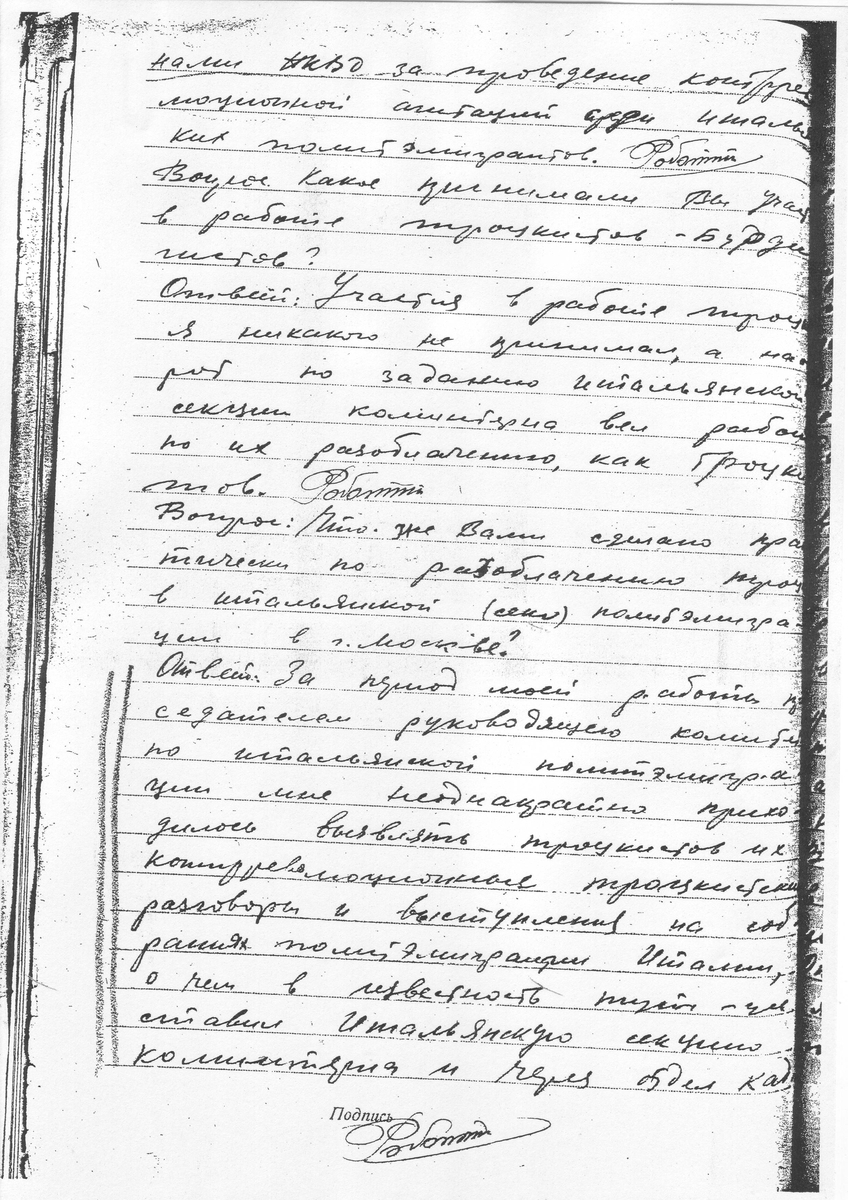 нами НКВД за проведение контррев
люционной агитации среди италья
ких политэмигрантов. Роботти
Вопрос: Какое принимали Вы учас
в работе троцкистов-Борди
гистов?
Ответ: Участия в работе троцк
я никакого не принимал, а нао
рот по заданию итальянской
секции коминтерна вел работ
по их разоблачению, как Троцки
тов. Роботти
Вопрос: Что же Вами сделано пра
тически по разоблачению троц
в итальянской (секц) политэмигра-
ции в г. Москве?
Ответ: За период моей работы пр
седателем руководящего комите
по итальянской политэмигра
ции мне неоднакратно прихо
дилось выявлять троцкистов их
контрреволюционные троцкистски
разговоры и выступления на соб
раниях политэмиграции Италии,
о чем в известность
ставил Итальянскую секцию
коминтерна и через отдел кад
Подпись
Роботти